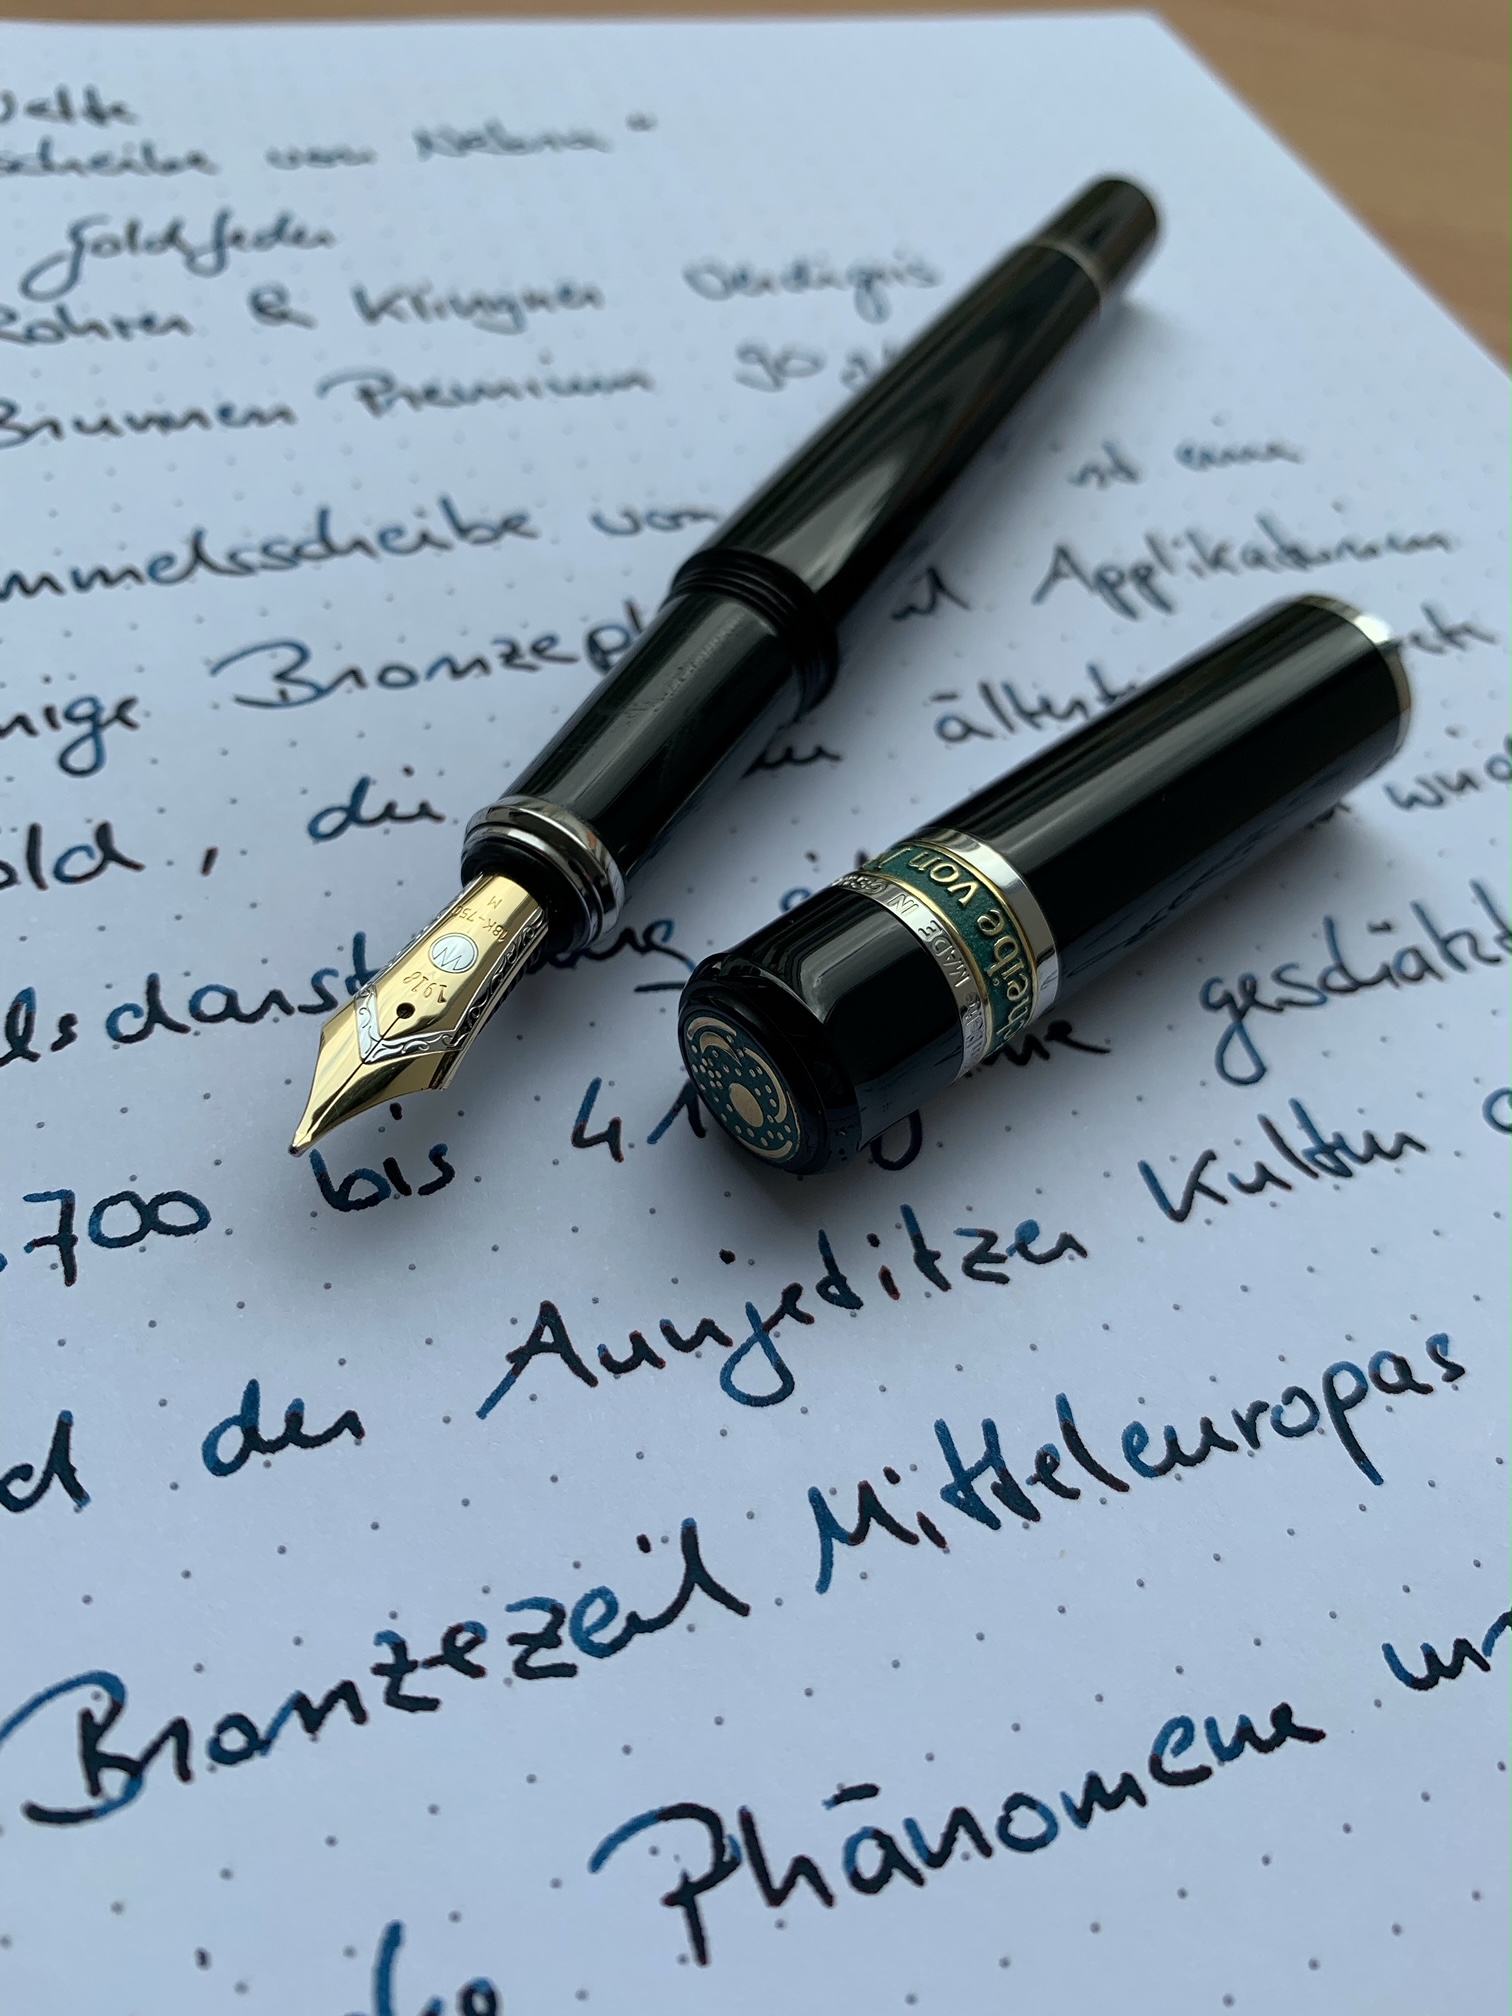 scheibe von Nebra"
Goldfeder
Rohrer & Klingner Verdigris
Brunnen Premium 90 g/
mmelsscheibe von ist eine
mige Bronzepl mit Applikationen
old, die älteste
lsdarst
.700 bis 4.1 geschätzt
d der Aunjetitzer Kultur
Bronzezeit Mitteleuropas
Phänomene un
18K-750
M
1918
scheibe von N
MADE IN GE